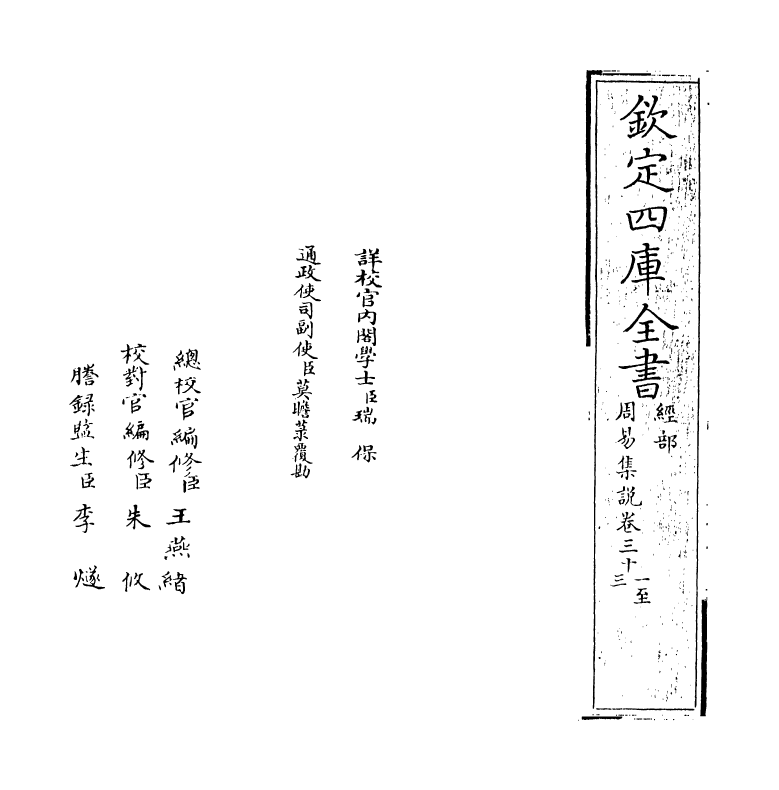 欽定四庫全書
經部
周易集説卷三十一至三
詳校官内閣學士臣瑞保
通政使司副使臣莫瞻菉覆勘
總校官編修臣王燕緒
校對官編修臣朱攸
謄錄監生臣李燧